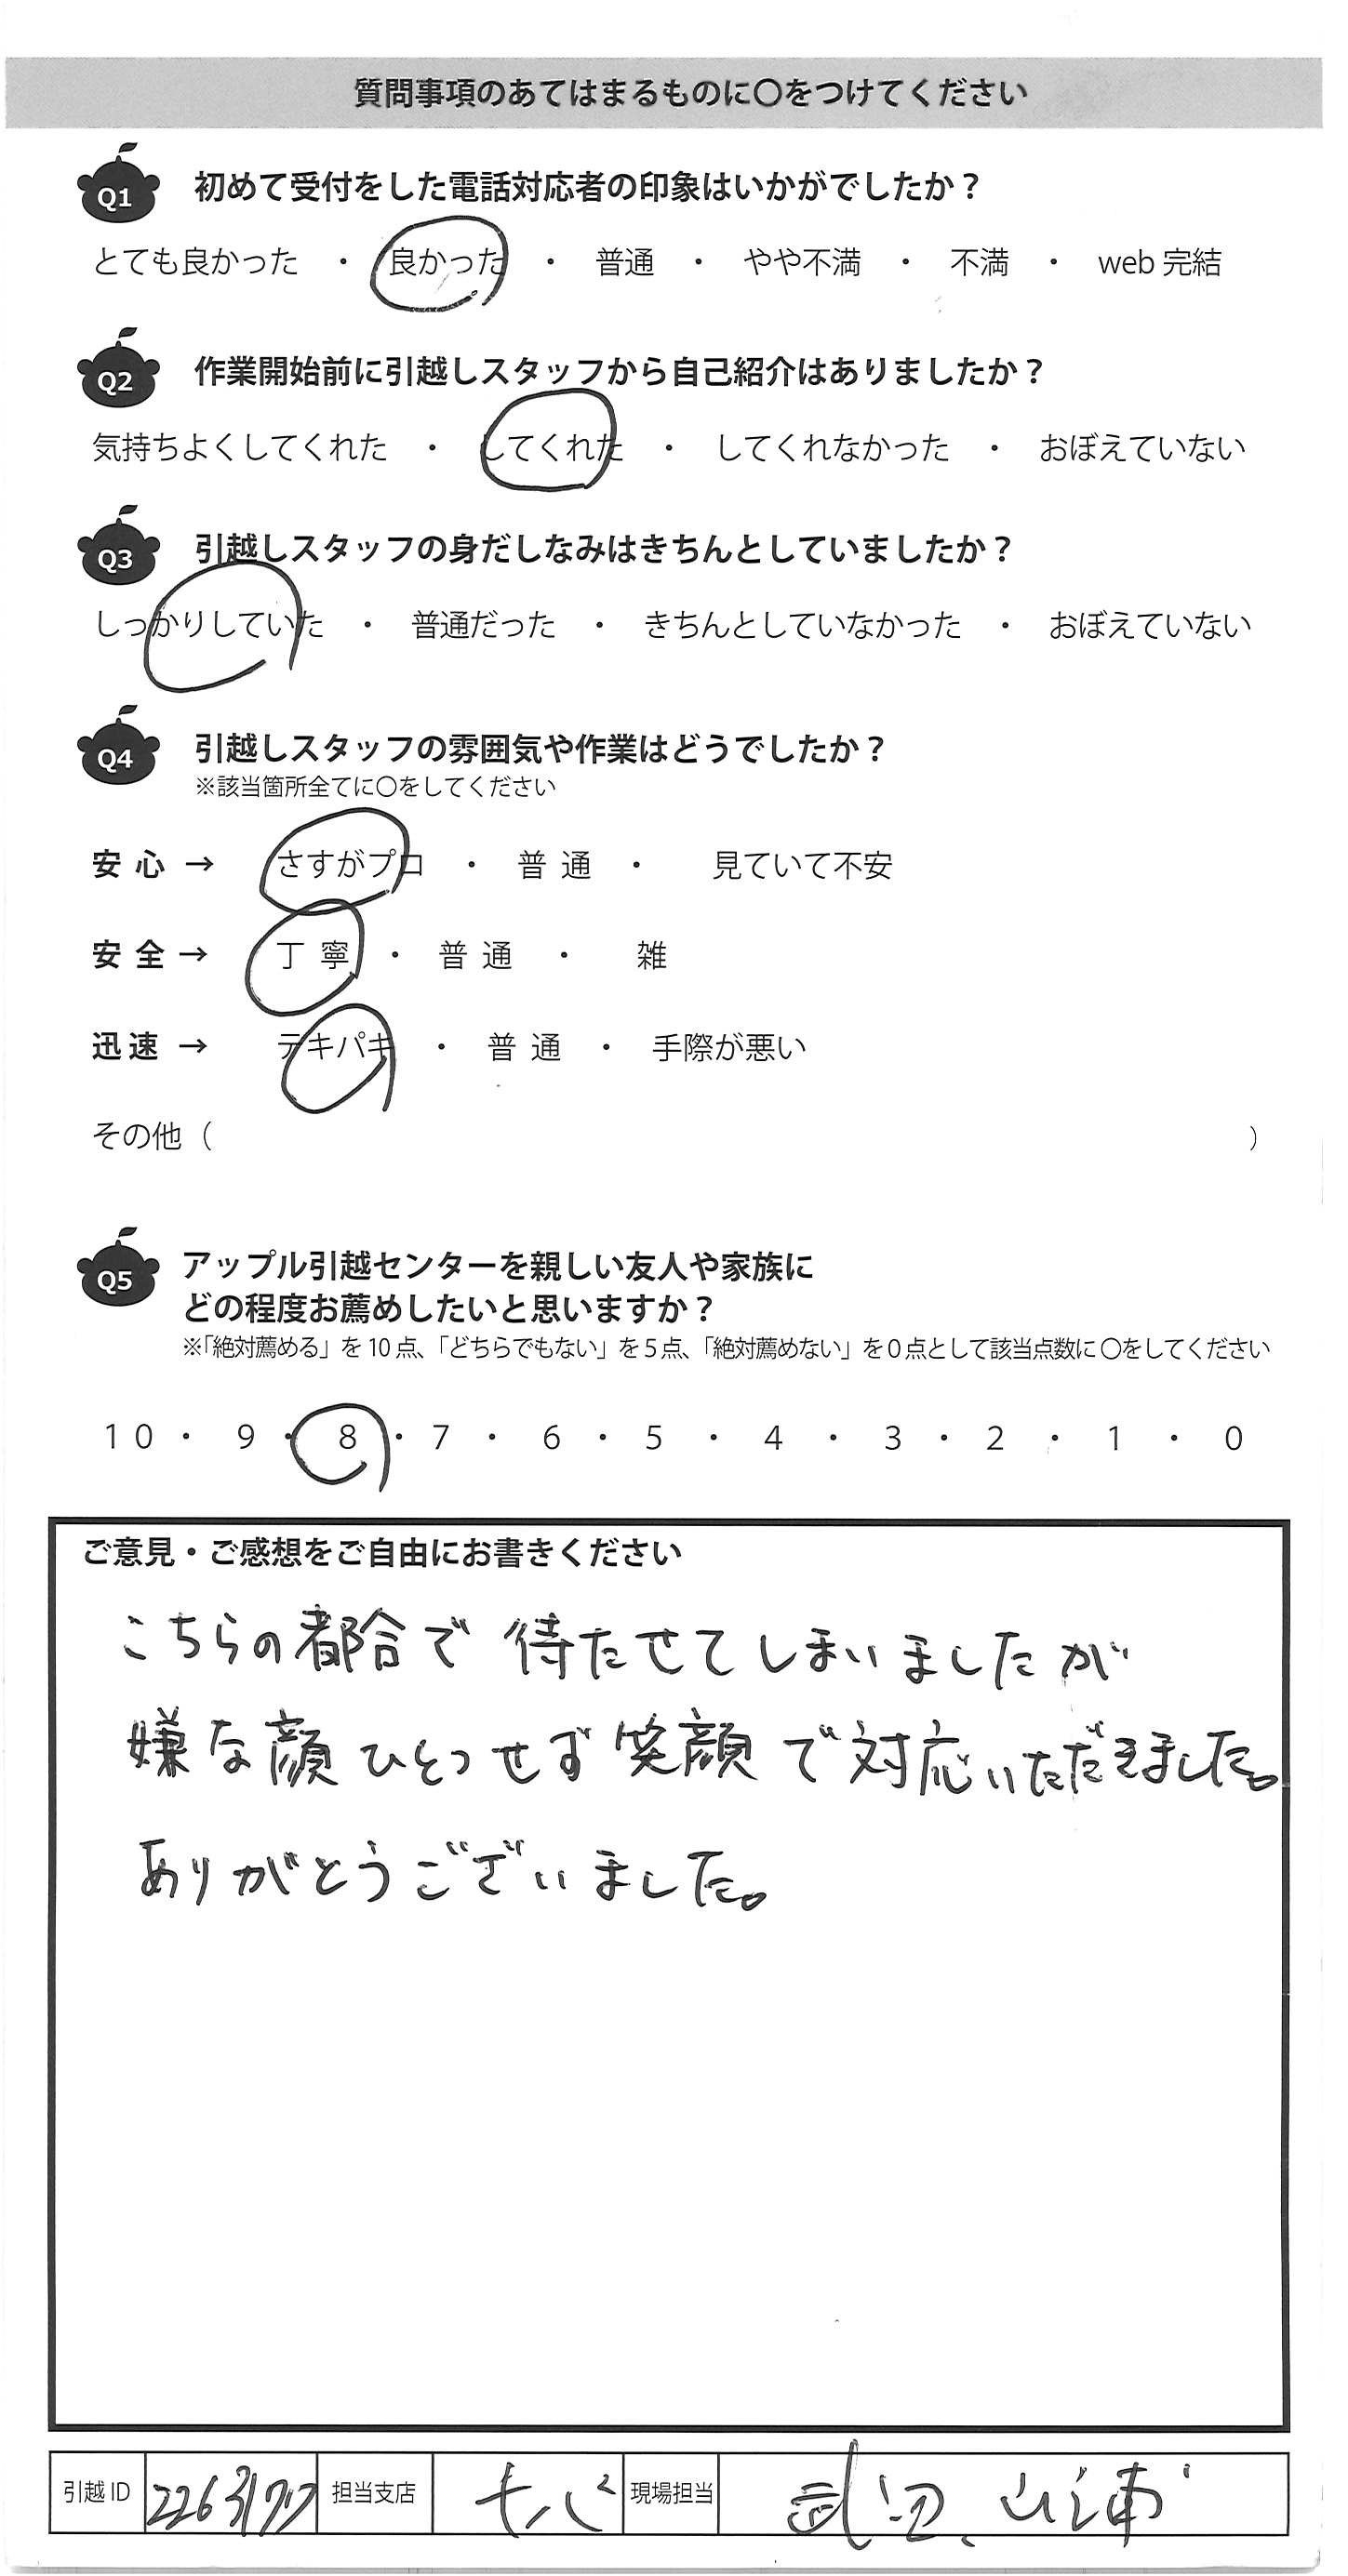 質問事項のあてはまるものに〇をつけてください
Q1 初めて受付をした電話対応者の印象はいかがでしたか？
とても良かった ・ 良かった ・ 普通 ・ やや不満 ・ 不満 ・ web 完結
Q2 作業開始前に引越しスタッフから自己紹介はありましたか？
気持ちよくしてくれた ・ してくれた ・ してくれなかった ・ おぼえていない
Q3 引越しスタッフの身だしなみはきちんとしていましたか？
しっかりしていた ・ 普通だった ・ きちんとしていなかった ・ おぼえていない
Q4 引越しスタッフの雰囲気や作業はどうでしたか？
※該当箇所全てに〇をしてください
安心 → さすがプロ ・ 普通 ・ 見ていて不安
安全 → 丁寧 ・ 普通 ・ 雑
迅速 → テキパキ ・ 普通 ・ 手際が悪い
その他（ ）
Q5 アップル引越センターを親しい友人や家族に
どの程度お薦めしたいと思いますか？
※「絶対薦める」を10点、「どちらでもない」を5点、「絶対薦めない」を0点として該当点数に〇をしてください
10 ・ 9 ・ 8 ・ 7 ・ 6 ・ 5 ・ 4 ・ 3 ・ 2 ・ 1 ・ 0
ご意見・ご感想をご自由にお書きください
こちらの都合で待たせてしまいましたが
嫌な顔ひとつせず笑顔で対応いただきました。
ありがとうございました。
引越ID 担当支店 現場担当